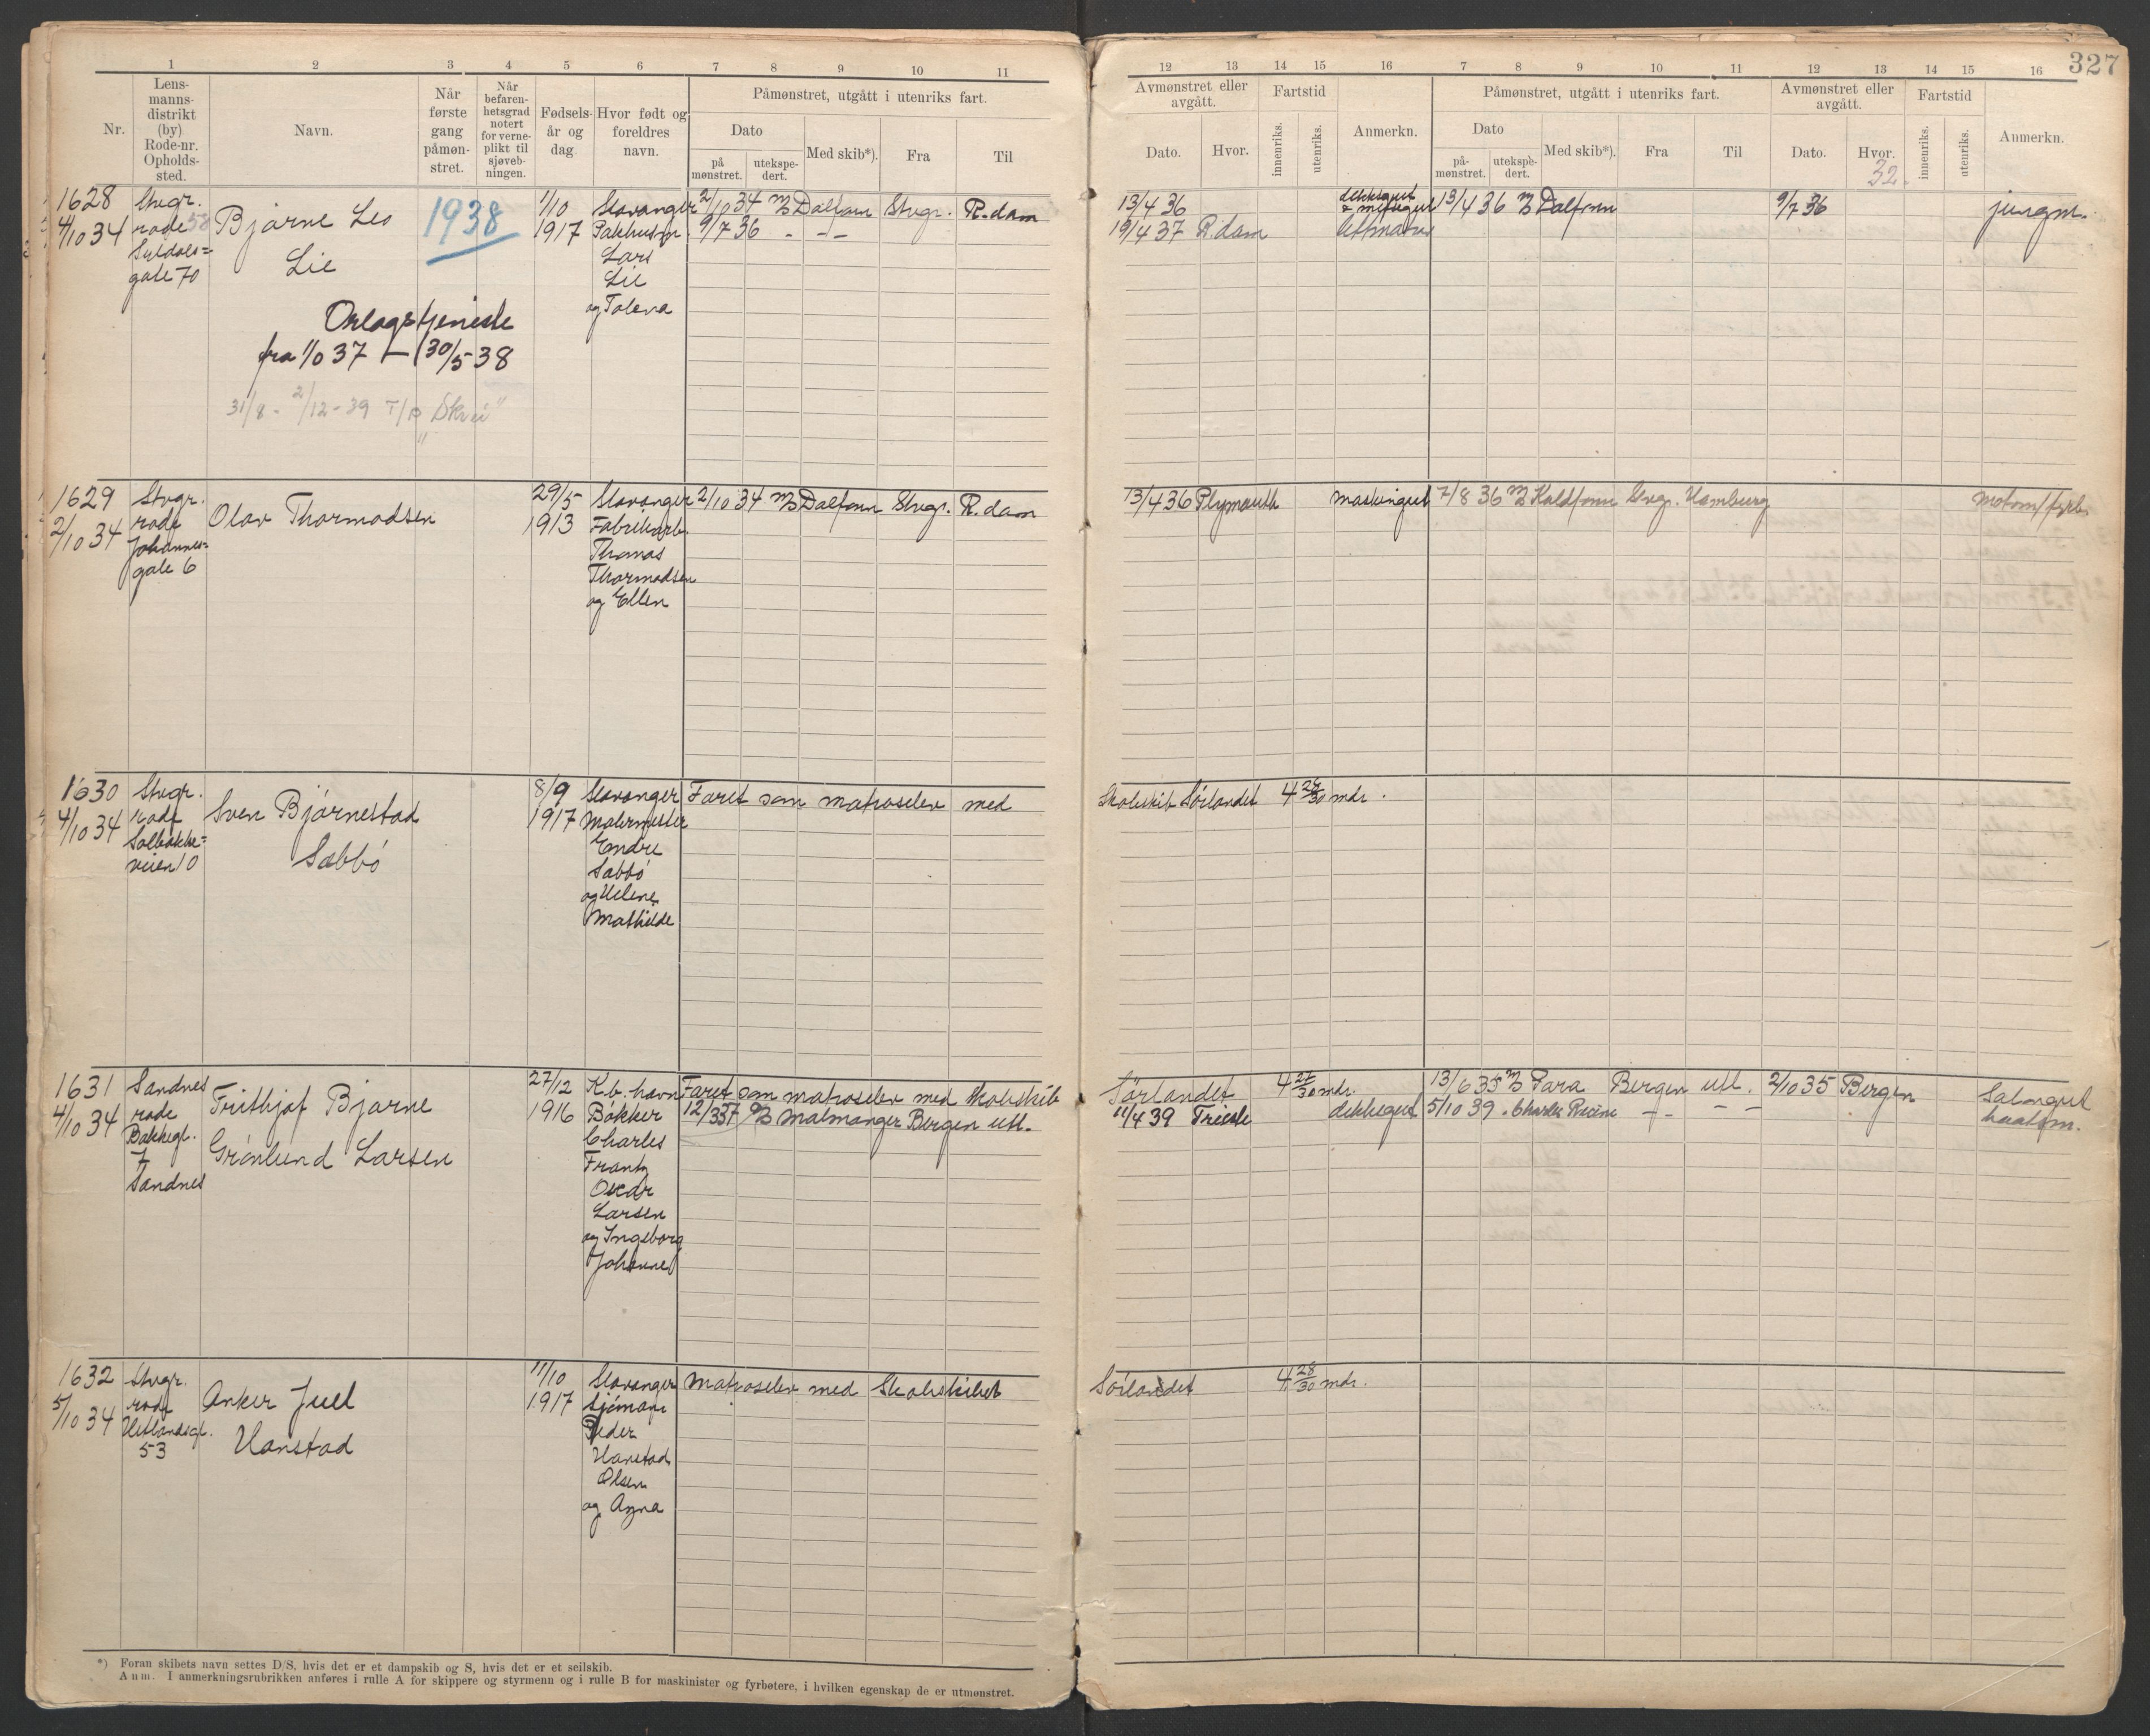 327
1 2 3 4 5 6 7 8 9 10 11
12 13 14 15 16 7 8 9 10 11 12 13 14 15 16
Nr.
Lens-
manns-
distrikt
(by)
Rode-nr.
Opholds-
sted.
Navn.
Når
første
gang
påmøn-
stret.
Når
befaren-
hetsgrad
notert
for verne-
plikt til
sjøveb-
ningen.
Fødsels-
år og
dag
Hvor født og
foreldres
navn.
Påmønstret, utgått i utenriks fart.
Dato
på
mønstret.
utekspe-
dert.
Med skib*).
Fra
Til
Avmønstret eller
avgått.
Dato.
Hvor.
Fartstid
innenriks.
utenriks.
Anmerkn.
Påmønstret, utgått i utenriks fart.
Dato
på-
mønstret.
utekspe-
dert.
Med skib*).
Fra
Til
Avmønstret eller
avgått.
Dato.
Hvor.
32.
Fartstid
innenriks.
utenriks.
Anmerkn.
1628
4/10 34
Stvgr.
rode 58
gate 70
Bjarne Leo
Lie
1938
1/10
1917
Stavanger
Lars
Lie
og Tolena
2/10 34 M/S Dalfonn Stvgr. R.dam
9/7 36 - - -
13/4 36
19/4 37 R.dam
13/4 36 M/S Dalfonn
9/7 36
jungm.
Orlogstjeneste
fra 1/10 37 - 30/5 38
31/8 - 2/12 - 39 T/B "Skrei"
1629
2/10 34
Stvgr.
rode
Johannes=
gate 6
Olav Thormodsen
29/5
1913
Stavanger
Fabrikarb.
Thomas
Thormodsen
og Ellen
2/10 34 M/S Dalfonn Stvgr. R.dam
13/4 36 Plymouth
maskingut
7/8 36 M/S Kaldfonn Stvgr. Hamburg
1630
4/10 34
Stvgr.
rode
Solbakke=
veien 10
Sven Bjørnestad
Sæbbø
8/9
1917
Stavanger
Malermester
Endre
Sæbbø
og Helene
Mathilde
Faret som matroselev med
Skoleskib Sørlandet 4 mdr.
1631
4/10 34
Sandnes
rode
Bakkegt.
7
Sandnes
Frithjof Bjarne
Grønlund Larsen
27/12
1916
Kb.havn
Bakker
Charles
Frantz
Oscar
Larsen
og Ingeborg
Johanne
Faret som matroselev med Skoleskib
Malmanger Bergen utl.
Sørlandet 4 27/30 mdr.
11/4 39 Trieste
dekksgut
13/6 35 M/S Tara Bergen utl. 2/10 35 Bergen
5/10 39 - Charles Racine - - - -
Salongut
1632
5/10 34
Stvgr.
rode
Hetlandsgt.
53
Anker Juel
Hanstad
11/10
1917
Stavanger
Sjømann
Peder
Hanstad
Olsen
og Anna
Matroselev med Skoleskibet
Sørlandet 4 28/30 mdr.
*) Foran skibets navn settes D/S, hvis det er et dampskib og S, hvis det er et seilskib.
Anm. I anmerkningsrubrikken anføres i rulle A for skippere og styrmenn og i rulle B for maskinister og fyrbøtere, i hvilken egenskap de er utmønstret.